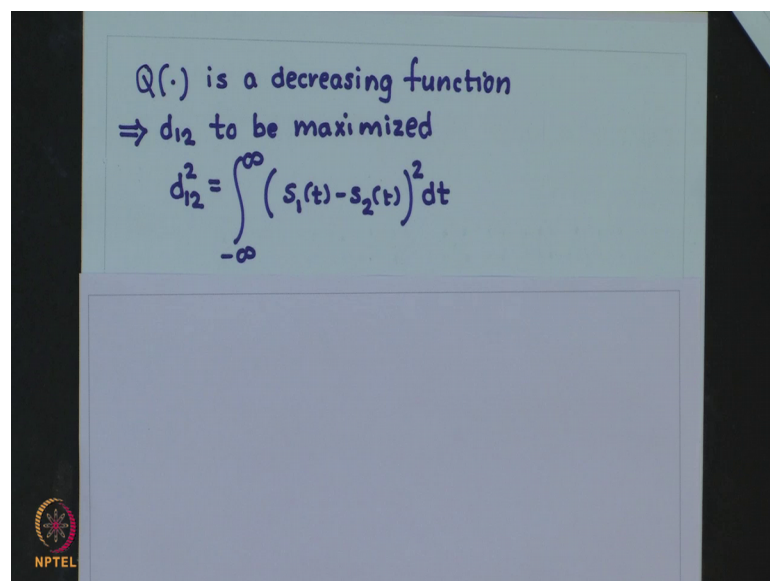 Q(·) is a decreasing function
⇒ d₁₂ to be maximized
d₁₂² = ∫_{-∞}^{∞} (s₁(t) - s₂(t))² dt
NPTEL